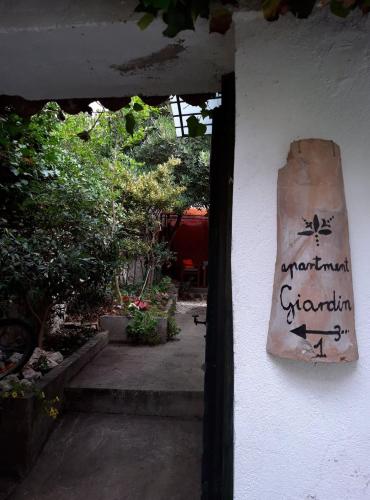 apartment
Giardin
3...
1